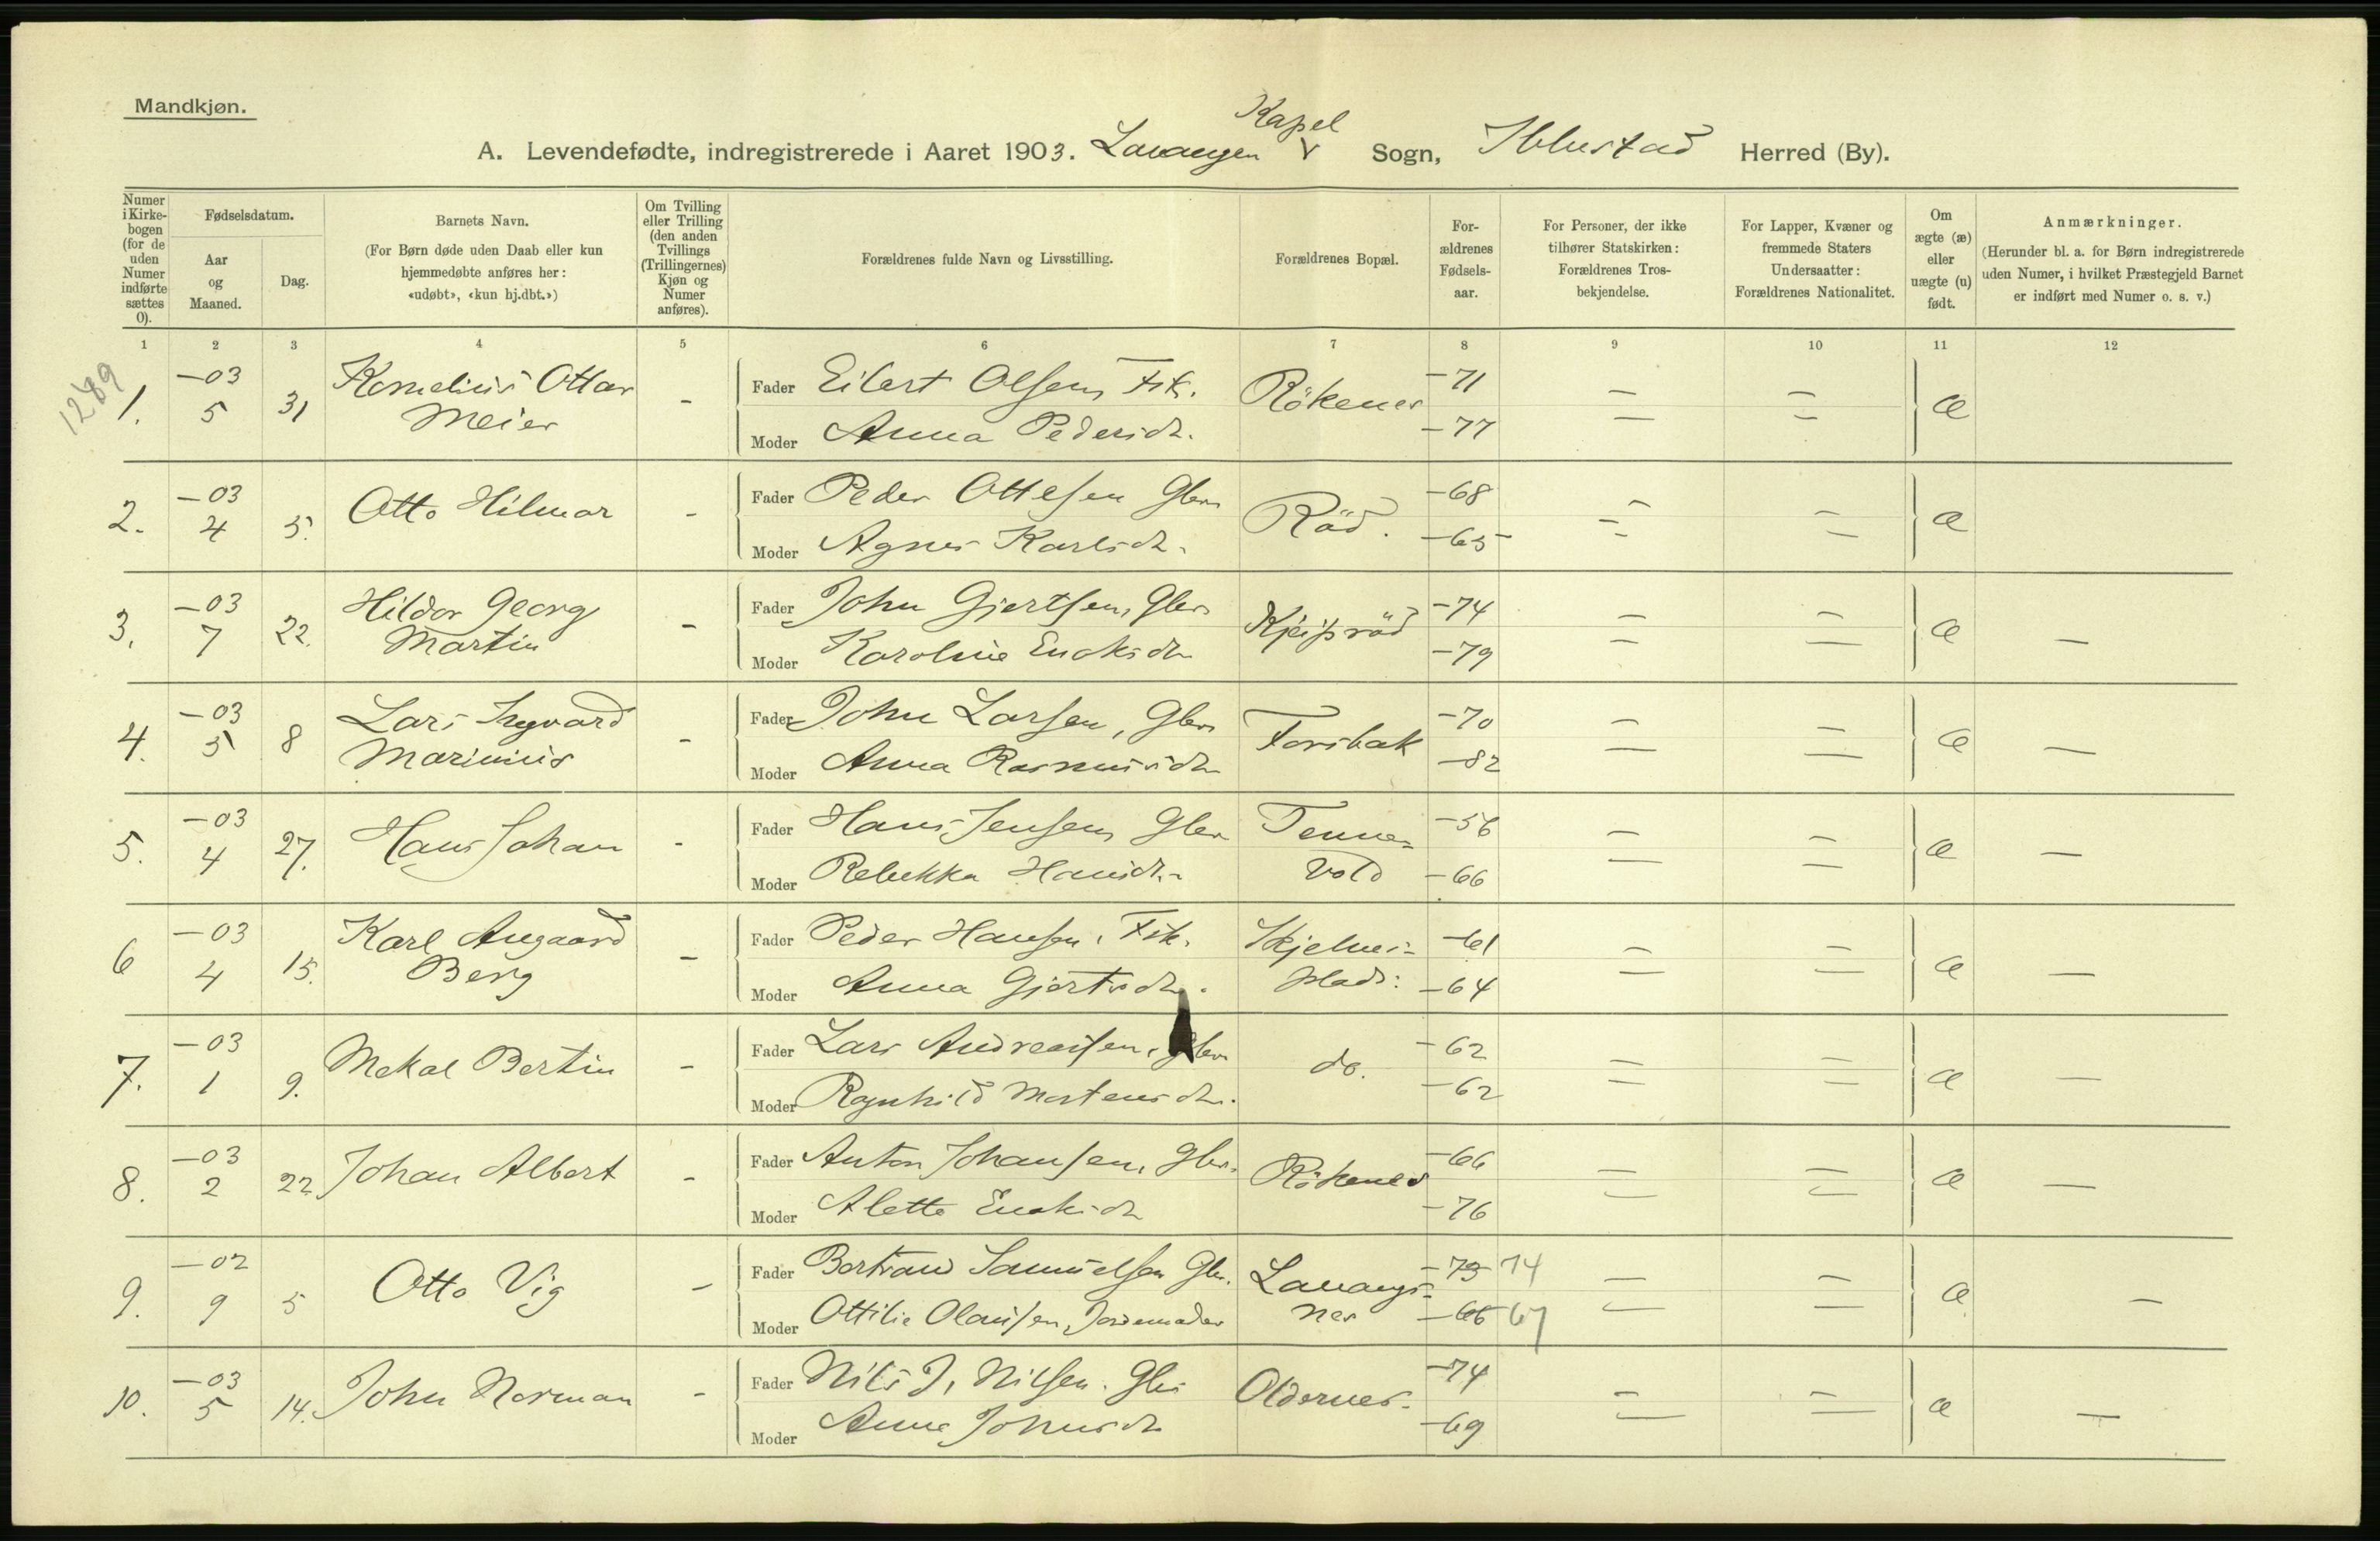 Mandkjøn.
Kapel
A. Levendefødte, indregistrerede i Aaret 1903. Lavangen V Sogn, Ibbestad Herred (By).
Numer i Kirke-bogen (for de uden Numer indførte sættes 0).
Fødselsdatum.
Aar og Maaned.
Dag.
Barnets Navn.
(For Børn døde uden Daab eller kun hjemmedøbte anføres her: «udøbt», «kun hj.dbt.»)
Om Tvilling eller Trilling (den anden Tvillings (Trillingernes) Kjøn og Numer anføres).
Forældrenes fulde Navn og Livsstilling.
Forældrenes Bopæl.
For-ældrenes Fødsels-aar.
For Personer, der ikke tilhører Statskirken: Forældrenes Tros-bekjendelse.
For Lapper, Kvæner og fremmede Staters Undersaatter: Forældrenes Nationalitet.
Om ægte (æ) eller uægte (u) født.
Anmærkninger.
(Herunder bl. a. for Børn indregistrerede uden Numer, i hvilket Præstegjeld Barnet er indført med Numer o. s. v.)
1 2 3 4 5 6 7 8 9 10 11 12
1. —03 5 31 Kornelius Ottar Meier - Fader Eilert Olsen, Fisk. Rökenes —71 æ
Moder Anna Pedersdt. —77
2. —03 4 5. Otto Hilmar - Fader Peder Ottesen Gbr. Röd. —68 æ
Moder Agnes Karlsdt. —65
3. —03 7 22. Hildor Georg Martin - Fader John Gjertsen, Gbr. Kjeipröd —74 æ —
Moder Karoline Enoksdt —79
4. —03 5 8 Lars Ingvard Marinius - Fader John Larsen, Gbr. Forsbak —70 æ —
Moder Anna Rasmusdt —82
5. —03 4 27. Hans Johan - Fader Hans Jensen Gbr Tenne-vold —56 æ —
Moder Rebekka Hansdt. —66
6 —03 4 15. Karl Angaard Berg - Fader Peder Hansen, Fisk. Skjelnes-plads: —61 æ —
Moder Anna Gjertsdt. —64
7. —03 1 9. Mekal Bertin - Fader Lars Andreassen, Gbr. do. —62 æ —
Moder Ragnhild Mortensdt. —62
8. —03 2 22 Johan Albert - Fader Anton Johansen, Gbr. Rökenes —66 æ —
Moder Alette Enoksdt —76
9. —02 9 5 Otto Vig - Fader Bertrand Samuelsen Gbr. Lavangs-nes —73 74 æ —
Moder Ottilie Olausen, Jordemoder —66 67
10. —03 5 14. John Norman - Fader Nils J. Nilsen. Gbr Oldernes. —74 æ —
Moder Anne Johnsdt —69